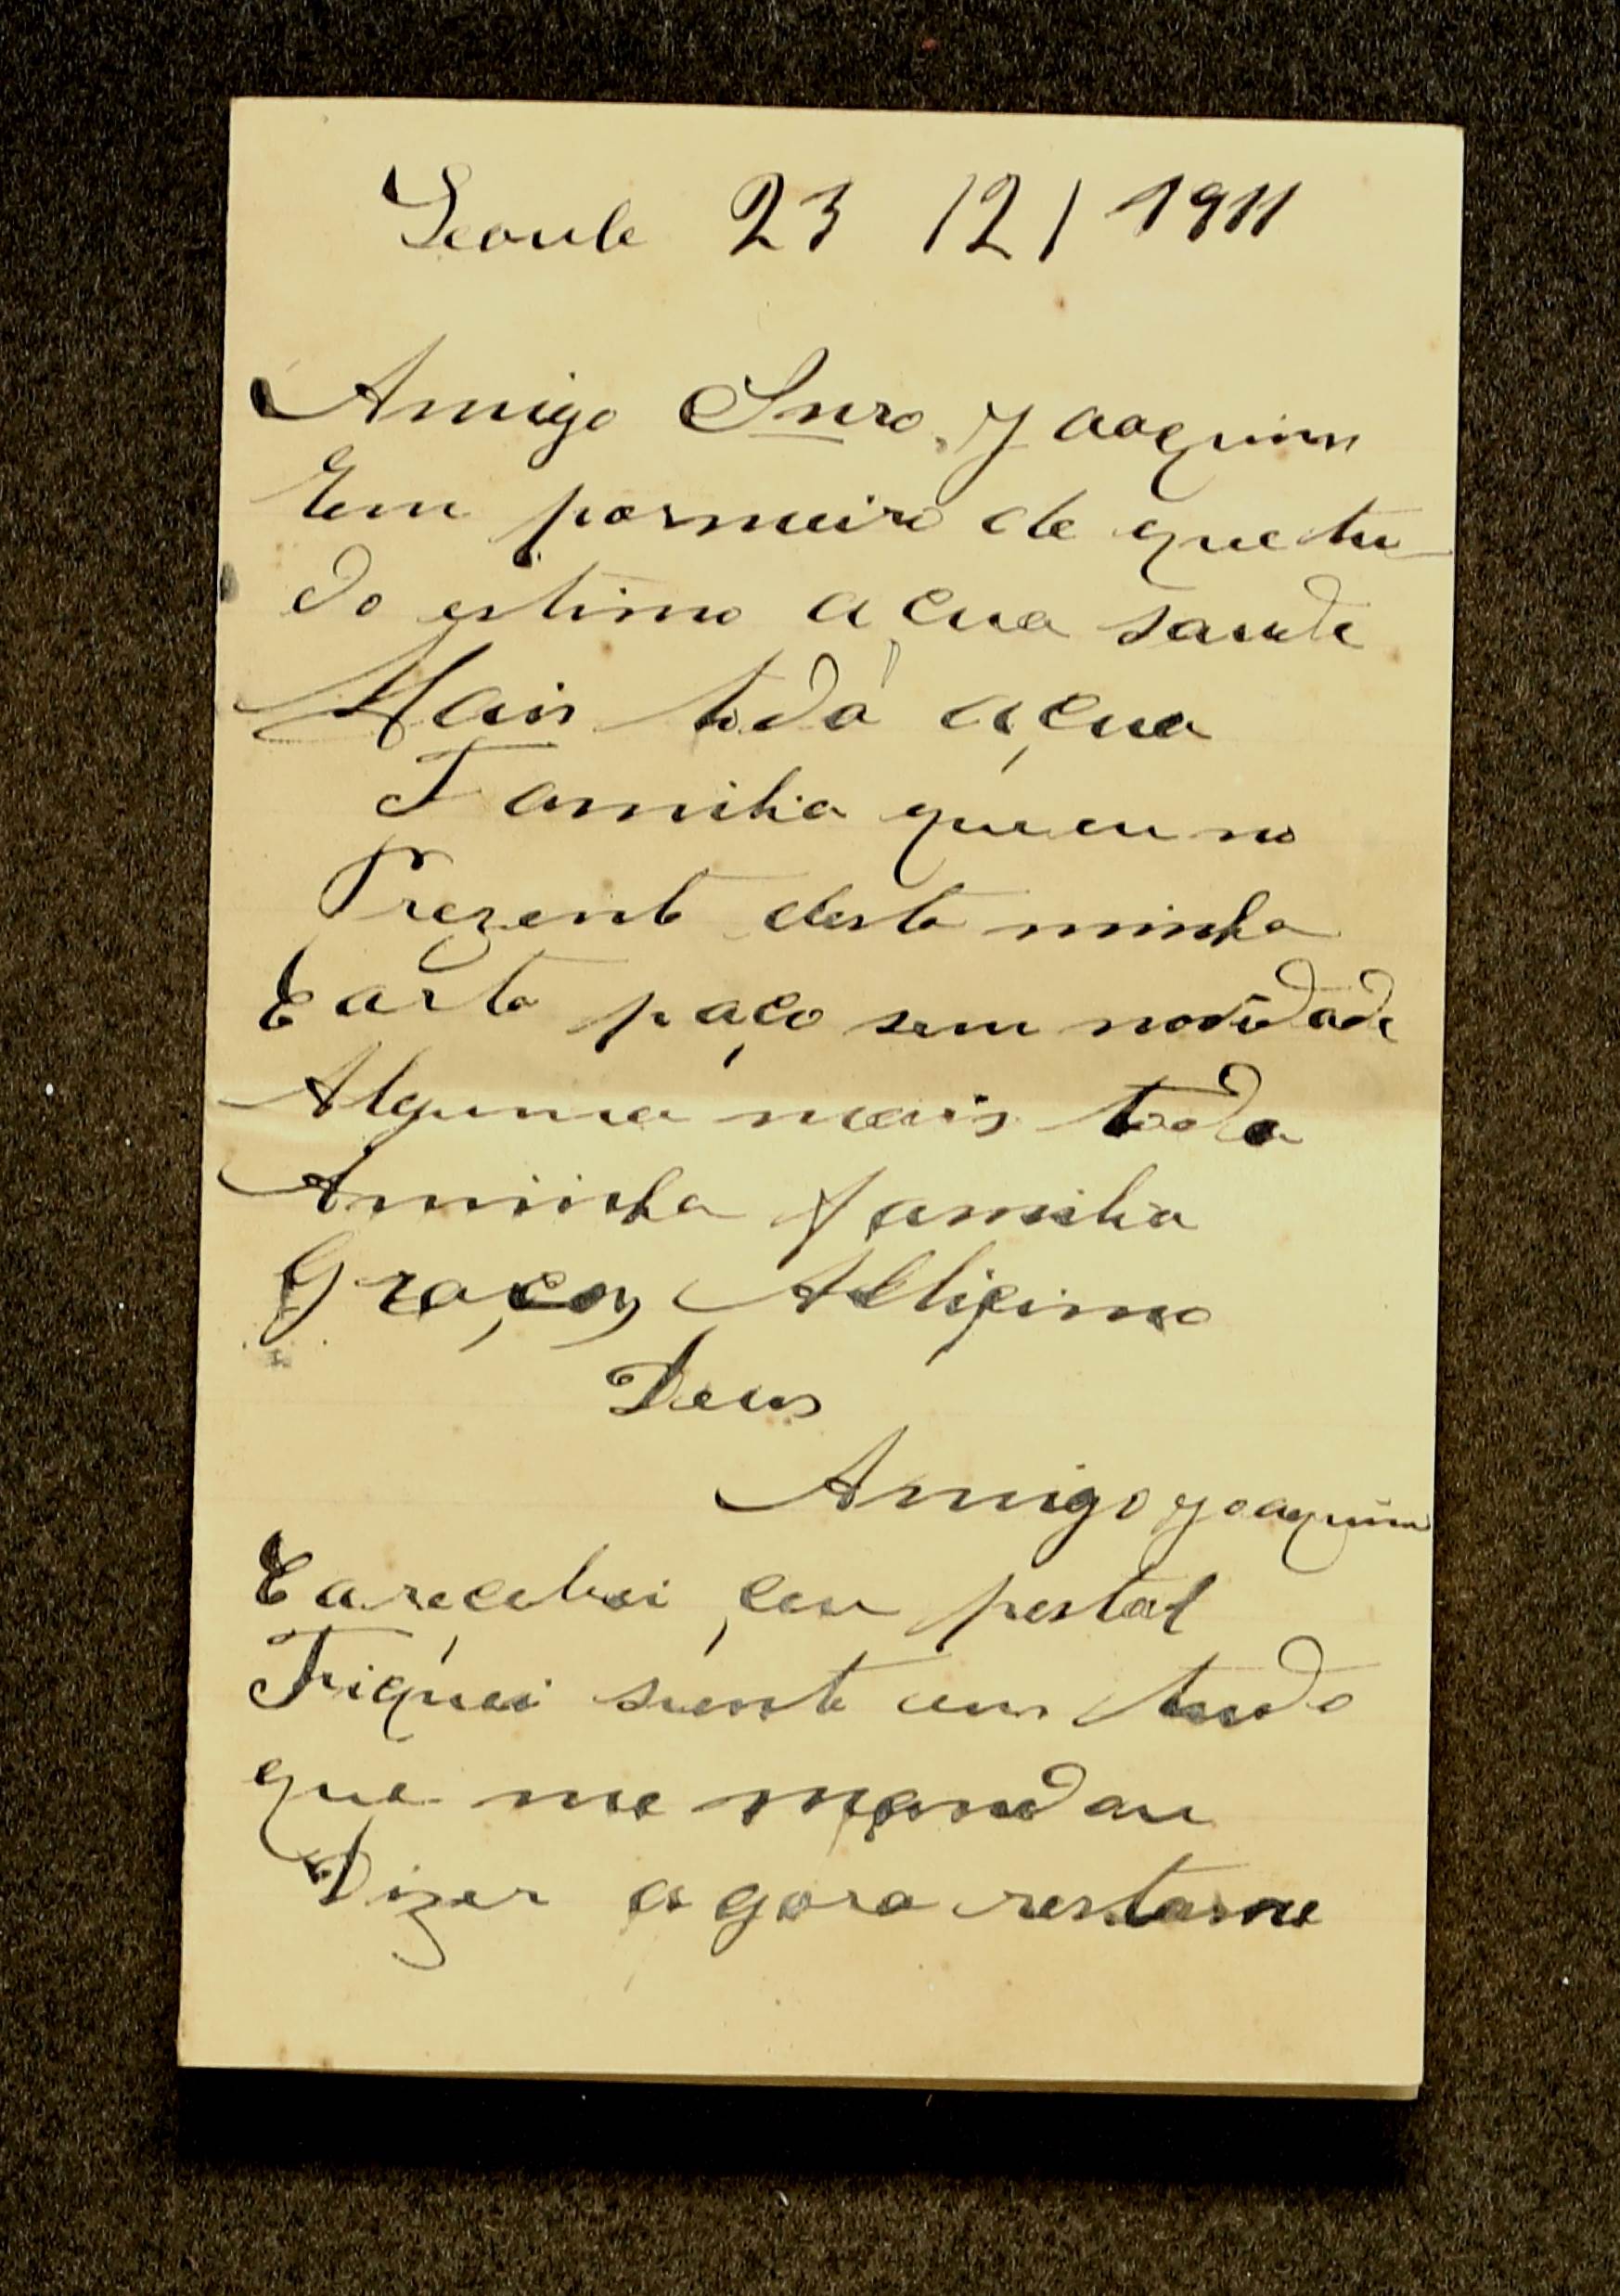 Seoule 23 /12/ 1911
Amigo Snro. Joaquim
Em pormeiro de que tu
do estimo a çua saude
Mais toda a çua
Familia que eu no
Prezente desta minha
Carta paço sem novidade
Alguma mais toda
Aminha familia
Graças Altiçimo
Deus
Amigo Joaquim
Ca reçebei çeu postal
Fiquei siente em tudo
que me mandou
Dizer agora restame